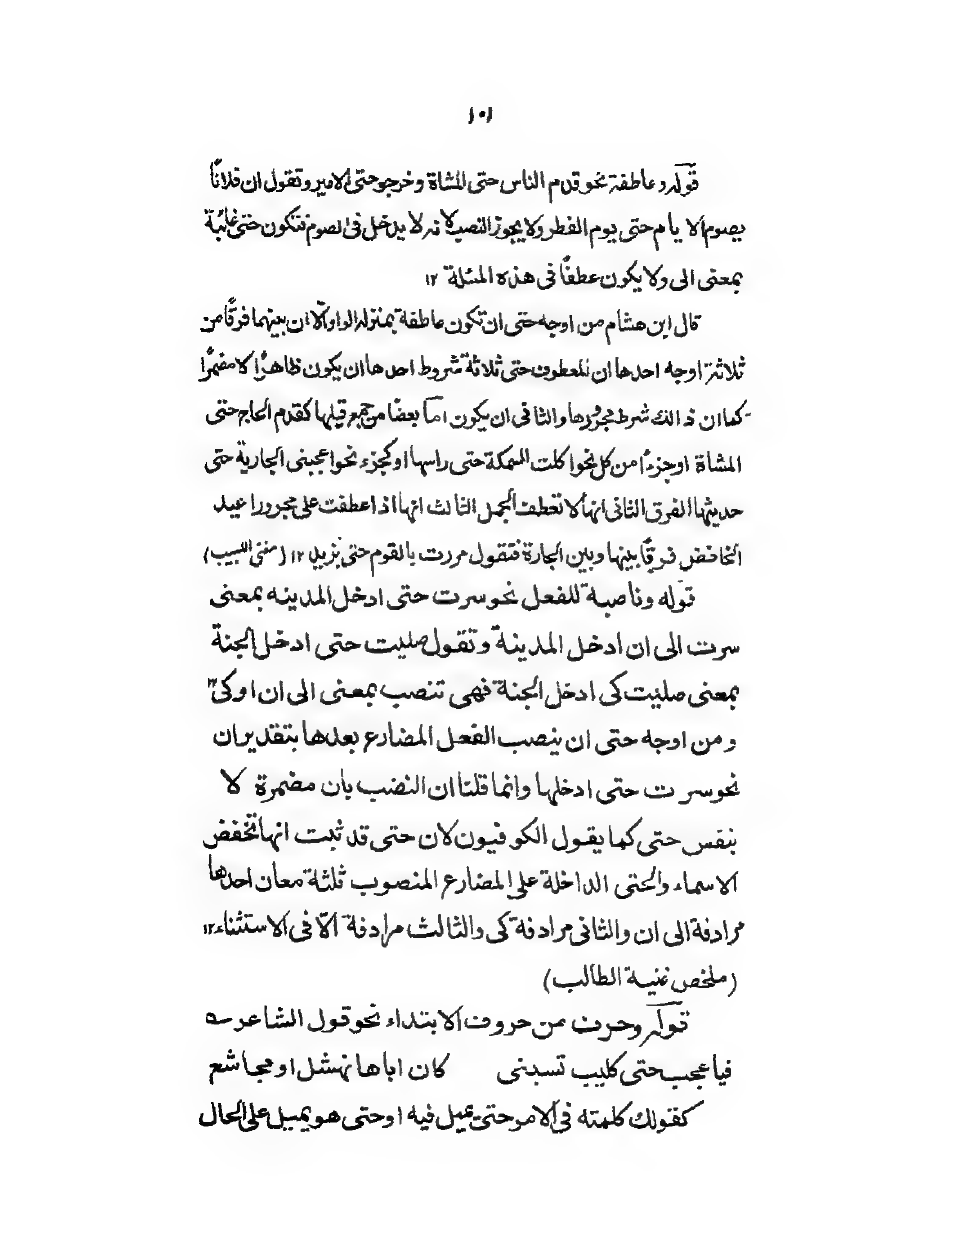 ١٠١
قوله وعاطفة نحو قدم الناس حتى المشاة وخرجو حتى الامير وتقول ان فلانًا
يصوم الايام حتى يوم الفطر ولا يجوز النصب لانه لا يدخل فى الصوم فتكون حتى غائبة
بمعنى الى ولا يكون عطفًا فى هذه المسئلة ١٢
قال ابن هشام من اوجه حتى ان تكون عاطفة بمنزله الواو الّا ان بينهما فرقًا من
ثلاثة اوجه احدها ان للمعطوف حتى ثلاثة شروط احدها ان يكون ظاهرًا لا مضمرًا
كما ان ذالك شرط مجرورها والثانى ان يكون اما بعضًا من جمع قبلها كقدم الحاج حتى
المشاة اوجزءًا من كل نحو اكلت السمكة حتى راسها او كجزء نحو اعجبنى الجارية حتى
حديثها الفرق الثانى انها لا تعطف الجمل الثالث انها اذا عطفت على مجرور اعيد
الخافض فرقًا بينها وبين الجارة فتقول مررت بالقوم حتى بزيد ١٢ (مغنى اللبيب)
قوله وناصبة للفعل نحو سرت حتى ادخل المدينه بمعنى
سرت الى ان ادخل المدينة وتقول صليت حتى ادخل الجنة
بمعنى صليت كى ادخل الجنة فهى تنصب بمعنى الى ان او كى ١٢
ومن اوجه حتى ان ينصب الفعل المضارع بعدها بتقدير ان
نحو سرت حتى ادخلها وانما قلنا ان النصب بان مضمرة لا
بنفس حتى كما يقول الكوفيون لان حتى قد ثبت انها تخفض
الاسماء والحتى الداخلة على المضارع المنصوب ثلثة معان احدها
مرادفة الى ان والثانى مرادفة كى والثالث مرادفة الّا فى الاستثناء ١٢
(ملخص غنية الطالب)
قوله وحرف من حروف الابتداء نحو قول الشاعر ؎
فيا عجب حتى كليب تسبنى كان اباها نهشل او مجاشع
كقولك كلمته فى الامر حتى يميل فيه او حتى هو يميل على الحال